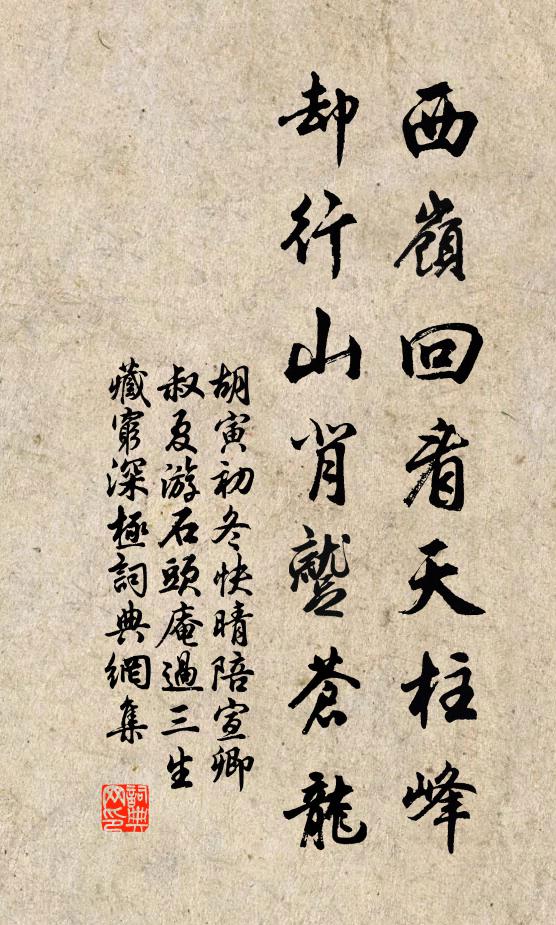 西嶺回看天柱峰
却行山背蹔蒼龍
胡寅初冬快晴陪宣卿
叔夏游石頭庵過三生
藏窮深極詞典網集
詞典
网印